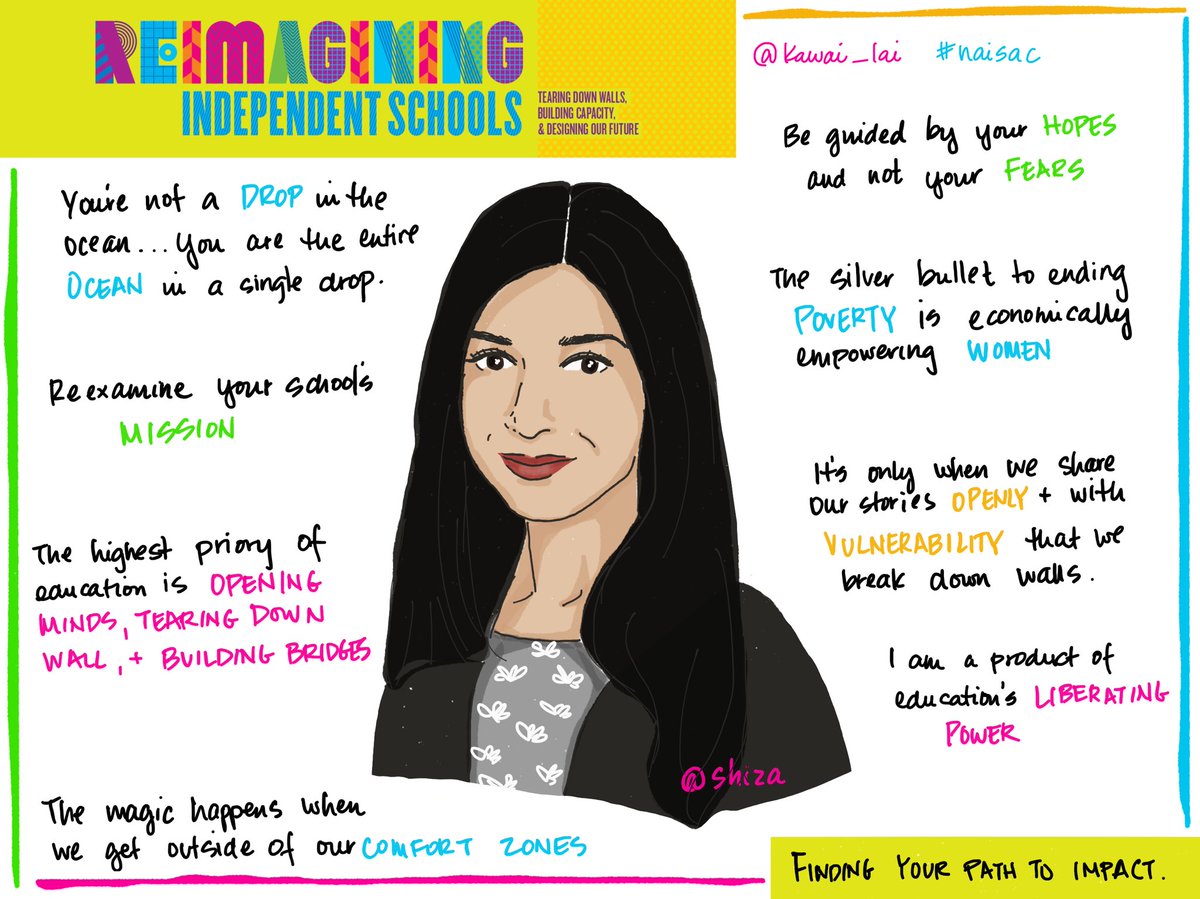 REIMAGINING
INDEPENDENT SCHOOLS
TEARING DOWN WALLS,
BUILDING CAPACITY,
& DESIGNING OUR FUTURE
@kawai_lai #naisac
You're not a DROP in the
ocean... You are the entire
OCEAN in a single drop.
Reexamine your school's
MISSION
The highest priory of
education is OPENING
MINDS, TEARING DOWN
WALL, + BUILDING BRIDGES
The magic happens when
we get outside of our COMFORT ZONES
Be guided by your HOPES
and not your FEARS
The silver bullet to ending
POVERTY is economically
empowering WOMEN
It's only when we share
our stories OPENLY + with
VULNERABILITY that we
break down walls.
I am a product of
education's LIBERATING
POWER
@shiza
FINDING YOUR PATH TO IMPACT.